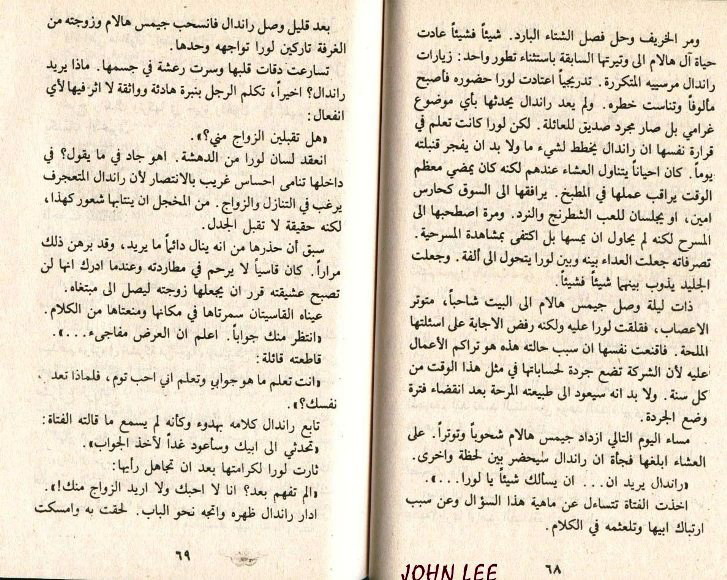 ومر الخريف وحل فصل الشتاء البارد. شيئاً فشيئاً عادت
حياة آل هالام الى وتيرتها السابقة باستثناء تطور واحد: زيارات
راندال مرسييه المتكررة. تدريجياً اعتادت لورا حضوره فأصبح
مألوفاً وتناست خطره. ولم يعد راندال يحدثها بأي موضوع
غرامي بل صار مجرد صديق للعائلة. لكن لورا كانت تعلم في
قرارة نفسها ان راندال يخطط لشيء ما ولا بد ان يفجر قنبلته
يوماً. كان احياناً يتناول العشاء عندهم لكنه كان يمضي معظم
الوقت يراقب عملها في المطبخ. يرافقها الى السوق كحارس
امين، او يجلسان للعب الشطرنج والنرد. ومرة اصطحبها الى
المسرح لكنه لم يحاول ان يمسها بل اكتفى بمشاهدة المسرحية.
تصرفاته جعلت العداء بينه وبين لورا يتحول الى ألفة. وجعلت
الجليد يذوب بينهما شيئاً فشيئاً.
ذات ليلة وصل جيمس هالام الى البيت شاحباً، متوتر
الاعصاب، فقلقت لورا عليه ولكنه رفض الاجابة على اسئلتها
الملحة. فاقنعت نفسها ان سبب حالته هذه هو تراكم الأعمال
عليه لأن الشركة تضع جردة لحساباتها في مثل هذا الوقت من
كل سنة. ولا بد انه سيعود الى طبيعته المرحة بعد انقضاء فترة
وضع الجردة.
مساء اليوم التالي ازداد جيمس هالام شحوباً وتوتراً. على
العشاء ابلغها فجأة ان راندال سيحضر بين لحظة واخرى.
«راندال يريد ان... ان يسألك شيئاً يا لورا...».
اخذت الفتاة تتساءل عن ماهية هذا السؤال وعن سبب
ارتباك ابيها وتلعثمه في الكلام.
٦٨
JOHN LEE
بعد قليل وصل راندال فانسحب جيمس هالام وزوجته من
الغرفة تاركين لورا تواجهه وحدها.
تسارعت دقات قلبها وسرت رعشة في جسمها. ماذا يريد
راندال؟ اخيراً، تكلم الرجل بنبرة هادئة وواثقة لا اثر فيها لأي
انفعال:
«هل تقبلين الزواج مني؟».
انعقد لسان لورا من الدهشة. اهو جاد في ما يقول؟ في
داخلها تنامى احساس غريب بالانتصار لأن راندال المتعجرف
يرغب في التنازل والزواج. من المخجل ان ينتابها شعور كهذا،
لكنه حقيقة لا تقبل الجدل.
سبق أن حذرها من انه ينال دائماً ما يريد، وقد برهن ذلك
مراراً. كان قاسياً لا يرحم في مطاردته وعندما ادرك انها لن
تصبح عشيقته قرر ان يجعلها زوجته ليصل الى مبتغاه.
عيناه القاسيتان سمرتاها في مكانها ومنعتاها من الكلام.
«انتظر منك جواباً. اعلم ان العرض مفاجىء...».
قاطعته قائلة:
«انت تعلم ما هو جوابي وتعلم اني احب توم، فلماذا تعد
نفسك؟».
تابع راندال كلامه بهدوء وكأنه لم يسمع ما قالته الفتاة:
«تحدثي الى ابيك وسأعود غداً لأخذ الجواب».
ثارت لورا لكرامتها بعد ان تجاهل رأيها:
«الم تفهم بعد؟ انا لا احبك ولا اريد الزواج منك!».
ادار راندال ظهره واتجه نحو الباب. لحقت به وامسكت
٦٩